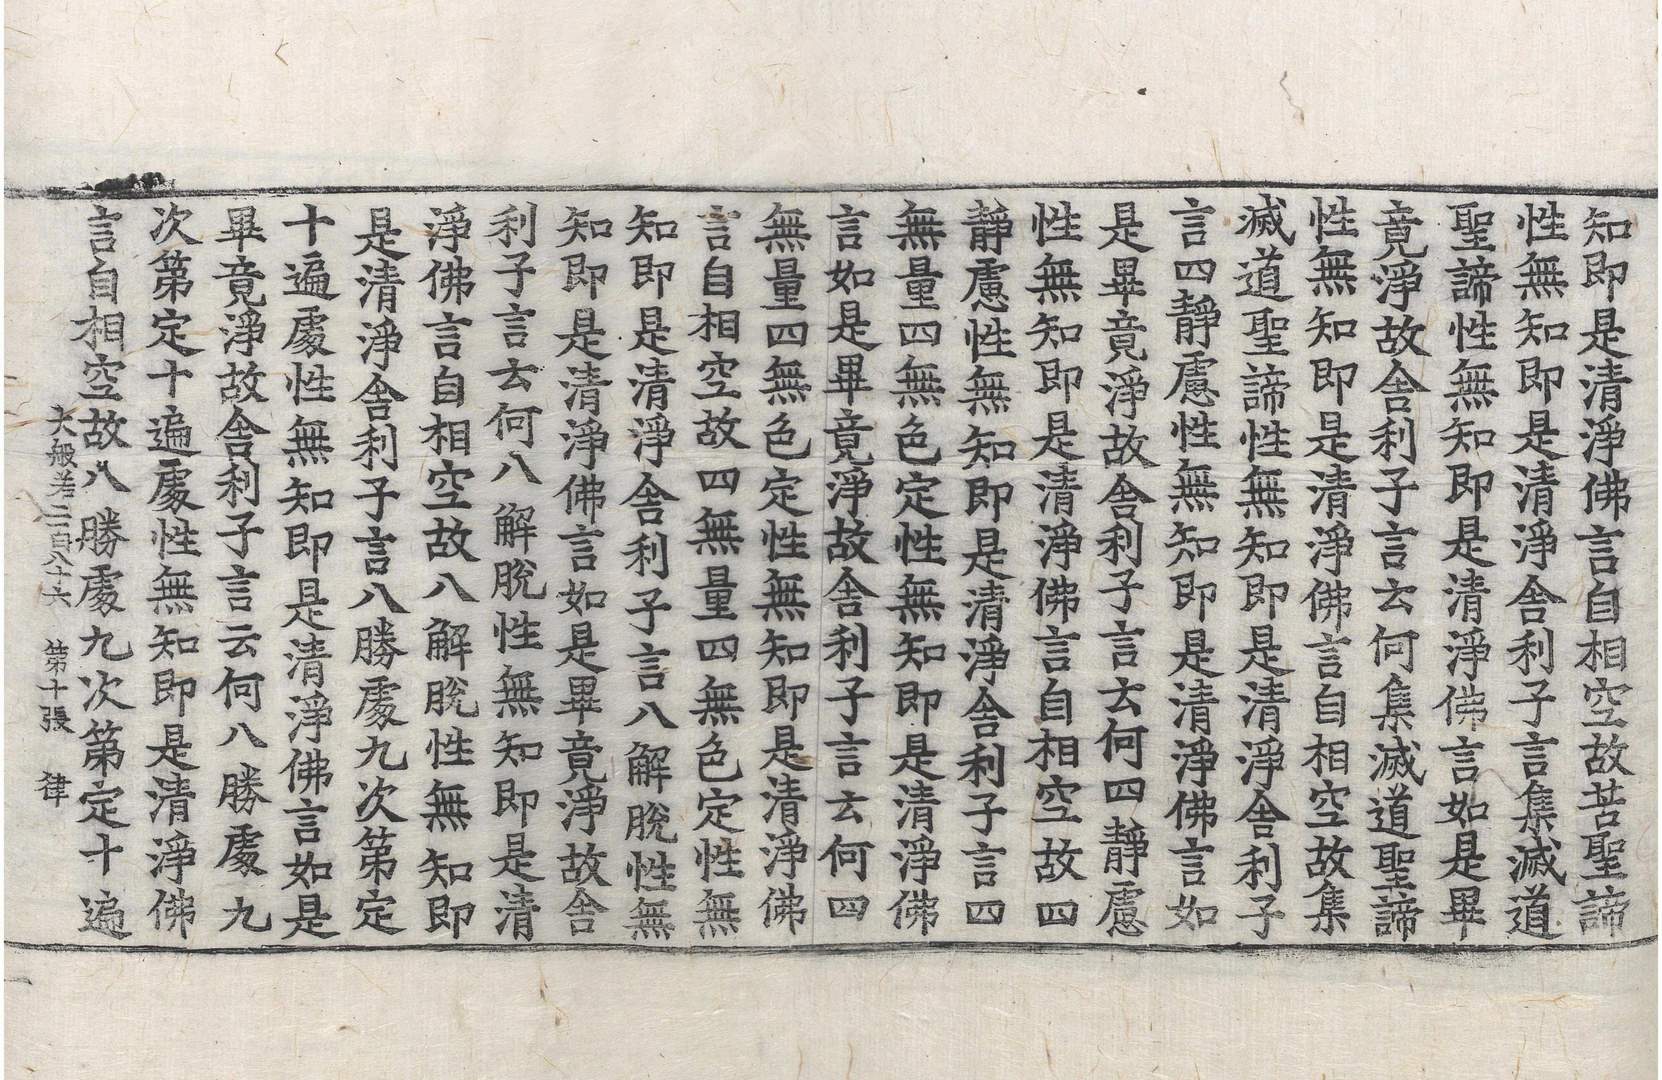 知即是清淨佛言自相空故苦聖諦
性無知即是清淨舍利子言集滅道
聖諦性無知即是清淨佛言如是畢
竟淨故舍利子言云何集滅道聖諦
性無知即是清淨佛言自相空故集
滅道聖諦性無知即是清淨舍利子
言四靜慮性無知即是清淨佛言如
是畢竟淨故舍利子言云何四靜慮
性無知即是清淨佛言自相空故四
靜慮性無知即是清淨舍利子言四
無量四無色定性無知即是清淨佛
言如是畢竟淨故舍利子言云何四
無量四無色定性無知即是清淨佛
言自相空故四無量四無色定性無
知即是清淨舍利子言八解脫性無
知即是清淨佛言如是畢竟淨故舍
利子言云何八解脫性無知即是清
淨佛言自相空故八解脫性無知即
是清淨舍利子言八勝處九次第定
十遍處性無知即是清淨佛言如是
畢竟淨故舍利子言云何八勝處九
次第定十遍處性無知即是清淨佛
言自相空故八勝處九次第定十遍
大般若二百八十六 第十張 律